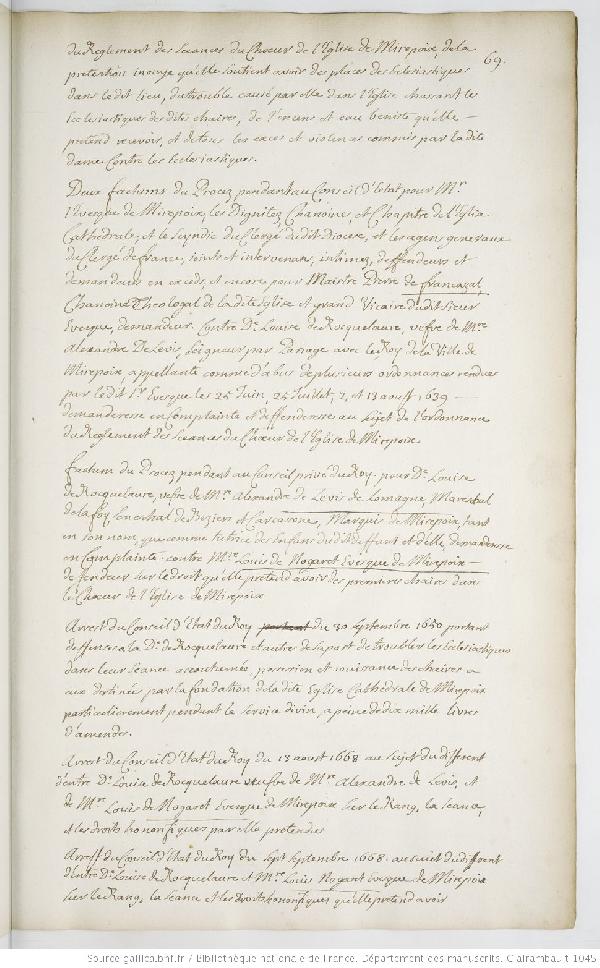 69.
du Reglement des seances du Choeur de l'Eglise de Mirepoix, de la
pretention inouye qu'elle soutient avoir des places des Eclesiastiques
dans le dit lieu, du trouble causé par elle dans l'Eglise chassant les
Ecclesiastiques des dites chaires, de l'encens et eau beniste qu'elle
pretend recevoir, et de tous les exces et violences commis par la dite
dame contre les Ecclesiastiques.
Deux factums du Procez pendant au Conseil d'Estat pour Mr.
l'Evesque de Mirepoix, les Dignitez, Chanoines, et Chapitre de l'Eglise
Cathedrale, et le scyndic du Clergé dudit Diocese, et les agens generaux
du Clergé de france, joints et intervenans, intimez, deffendeurs et
demandeurs en excéds, et encore pour Maistre Pierre de francazal,
Chanoine Theologal de la dite Eglise et grand Vicaire dudit sieur
Evesque, demandeur. Contre De. Louise de Rocquelaure, vefve de Mre.
Alexandre De Levis, seigneur par Pariage avec le Roy de la Ville de
Mirepoix, appellante comme d'abus de plusieurs ordonnances rendues
par le dit Sr. Evesque les 25 Juin, 24 Juillet, 7, et 13 aoust 1639
demanderesse en complainte et deffenderesse au sujet de l'ordonnance
du Reglement des seances du Choeur de l'Eglise de Mirepoix
factum du Procez pendant au Conseil privé du Roy. pour De. Louise
de Rocquelaure, vefve de Mre. Alexandre de Levis de Lomagne, Mareschal
de la foy, senechal de Beziers et Carcaconne, Marquis de Mirepoix, tant
en son nom, que comme tutrice des enfans dudit deffunct et d'elle, demanderesse
en Complainte. contre Mre. Louis de Nogaret Evesque de Mirepoix
deffendeur sur le droit qu'elle pretend avoir des premieres chaires dans
le Choeur de l'Eglise de Mirepoix
Arrest du Conseil d'Etat du Roy du 30 septembre 1650 portant
deffenses a la De. de Rocquelaure et autres de sa part de troubler les Ecclesiastiques
dans leur seance accoutumée, possession et jouissance des chaires a
eux destinées par la fondation de la dite Eglise Cathedrale de Mirepoix
particulierement pendant le service divin, a peine de dix mille livres
d'amendes.
Arrest du Conseil d'Etat du Roy du 13 aoust 1668 au sujet du different
d'entre De. Louise de Rocquelaure veufve de Mre. Alexandre de Levis, et
de Mre Louis de Nogaret Evesque de Mirepoix sur le Rang, la seance,
et les droits honorifiques par elle pretendus
Arrest du Conseil d'Etat du Roy du sept septembre 1668. au sujet du different
d'entre De. Louise de Rocquelaure et Mre. Louis Nogaret evesque de Mirepoix
sur le Rang, la seance et les droits honorifiques qu'elle pretend avoir
Source gallica.bnf.fr / Bibliothèque nationale de France. Département des manuscrits. Clairambault 1045